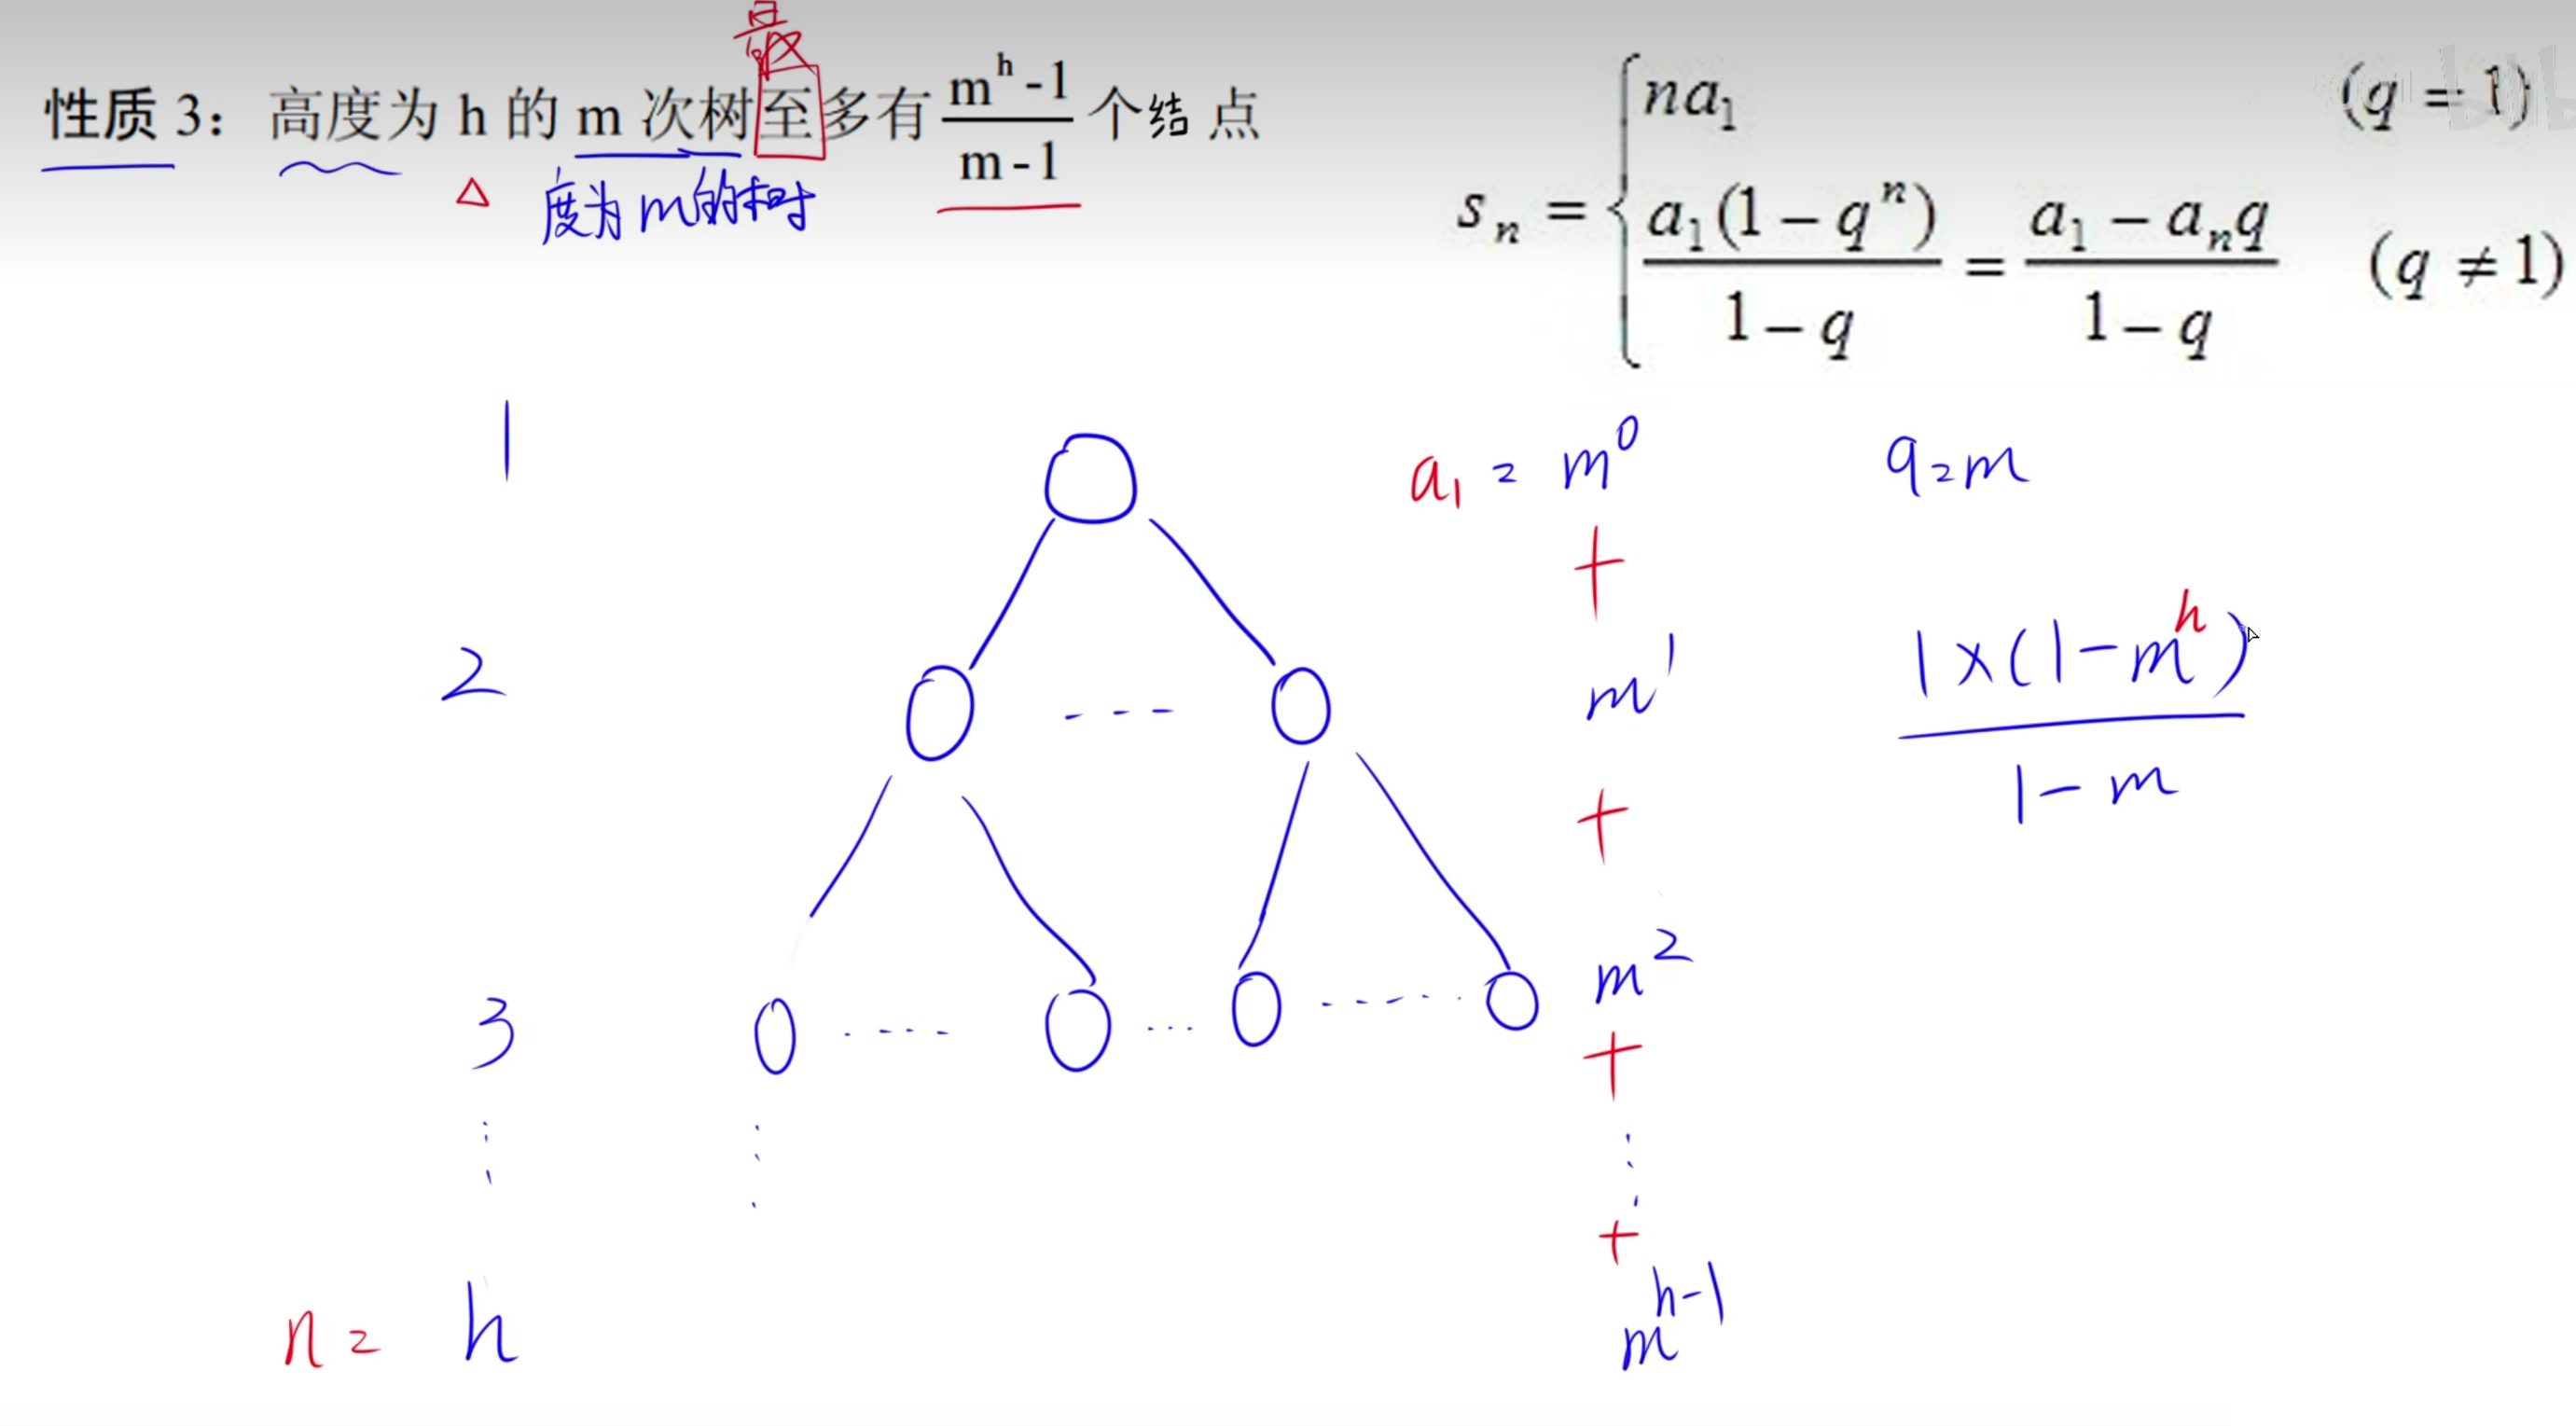 最
性质 3：高度为 h 的 m 次树至多有 (m^h - 1)/(m - 1) 个结 点
△ 度为m的树
s_n = { na_1 (q = 1)
a_1(1 - q^n)/(1 - q) = (a_1 - a_n q)/(1 - q) (q ≠ 1)
1 a_1 = m^0 q=m
+
2 --- m^1 (1×(1-m^h))/(1-m)
+
3 ---- ... ----- m^2
+
⋮ ⋮ ⋮
+
n = h m^(h-1)